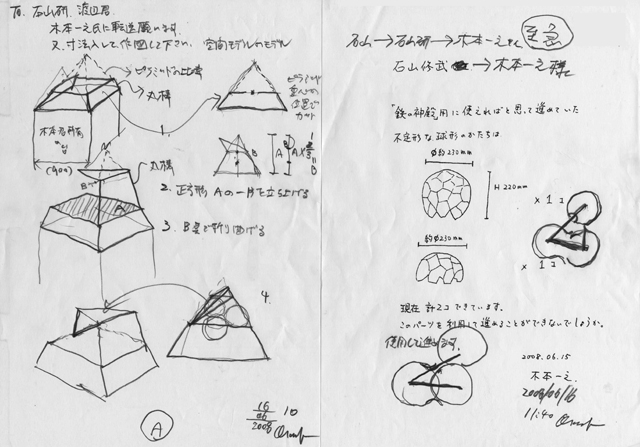 To. 石山研. 渡辺君.
木本一之氏に転送願います.
又、寸法入して作図して下さい. 空間モデルのモデル
ピラミッドの比率
丸棒
1
ピラミッドの
重心から
カット
木本君所有
(900)
A
B
丸棒
2. 正方形 Aの一片を立ち上げる
3. Bを折り曲げる
4.
A
16
06
2008
10
石山→石山研→木本一之さん 至急
石山修武→木本一之様
「鉄の神殿」用に使えればと思って進めていた
不定形な球形のかたちは.
約φ230mm
H 220mm
× 1コ
約φ230mm
× 1コ
現在 計2コできています.
このパーツを利用して進めることができないでしょうか.
使用して進めます.
2008.06.15
木本一之.
2008/06/16
11:40